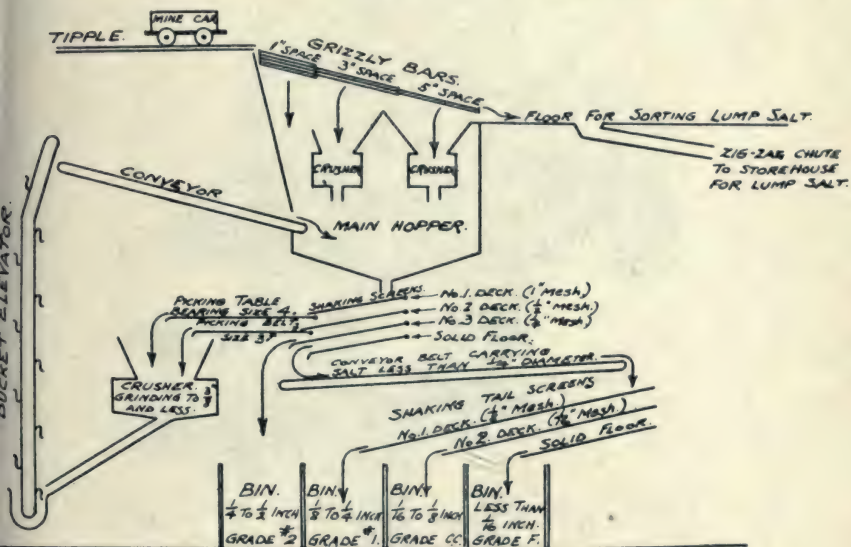 MINE CAR
TIPPLE.
GRIZZLY BARS.
1" SPACE 3" SPACE 5" SPACE
FLOOR FOR SORTING LUMP SALT.
ZIG-ZAG CHUTE
TO STOREHOUSE
FOR LUMP SALT.
CRUSHER
CRUSHER
CONVEYOR
MAIN HOPPER.
BUCKET ELEVATOR.
SHAKING SCREENS
No.1. DECK. (1" MESH.)
No.2 DECK. (" MESH)
No.3 DECK. (" MESH)
SOLID FLOOR.
PICKING TABLE
BEARING SIZE 4.
PICKING BELT,
SIZE 3.
CONVEYOR BELT CARRYING
SALT LESS THAN DIAMETER.
CRUSHER.
GRINDING TO
AND LESS.
SHAKING TAIL SCREENS
No.1. DECK. (1/8" MESH.)
No.2. DECK. (1/16" MESH.)
SOLID FLOOR.
BIN.
1/4 TO 1/2 INCH
GRADE #2
BIN.
1/8 TO 1/4 INCH
GRADE #1.
BIN.
1/16 TO 1/8 INCH
GRADE CC.
BIN.
LESS THAN
1/16 INCH.
GRADE F.